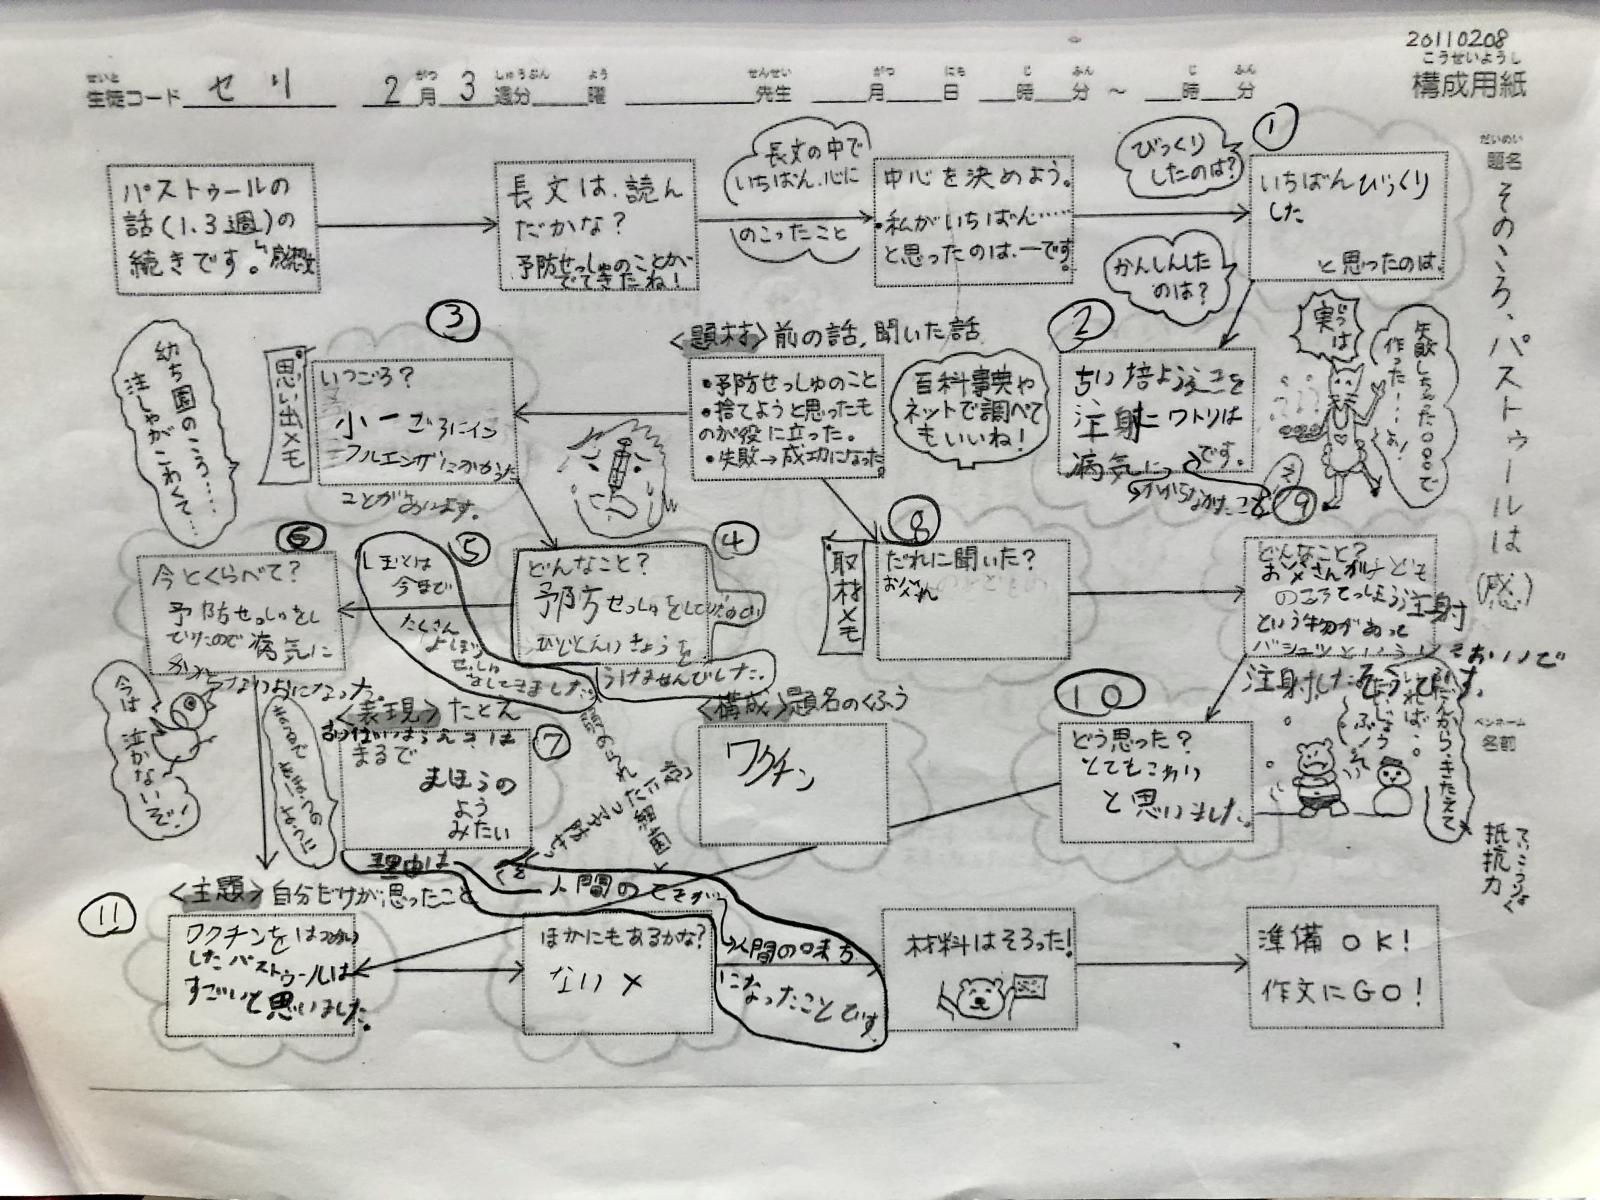 20110208
こうせいようし
構成用紙
せいと がつ しゅうぶん よう せんせい がつ にち じ ふん じ ふん
生徒コード セリ 2月 3週分 曜 先生 月 日 時 分 ～ 時 分
だいめい
題名
そのころ、パストゥールは(感)
ペンネーム
名前
パストゥールの
話(1.3週)の
続きです。
感想文
長文は、読ん
だかな?
予防せっしゅのことが
でてきたね!
長文の中で
いちばん、心に
のこったこと
中心を決めよう。
・私がいちばん……
と思ったのは、ーです。
びっくり
したのは?
①
いちばんびっくり
した
と思ったのは、
かんしんした
のは?
②
古い培よう
注射
ニワトリは
病気に
かからなかったこと
です。
じつ
実は
失敗しちゃった○○○で
作った…ぉ!
⑨
<題材>前の話,聞いた話
・予防せっしゅのこと
・捨てようと思ったも
のが役に立った。
・失敗→成功になった。
百科事典や
ネットで調べて
もいいね!
③
思い出メモ
いつごろ?
小一ごろにイン
フルエンザにかかった
ことがあります。
幼ち園のころ……
注しゃがこわくて…
④
どんなこと?
予防せっしゅをして
うけませんでした。
⑤
しぼくは
今まで
たくさん
よぼう
せっしゅ
してきました。
⑥
今とくらべて?
予防せっしゅをし
病気に
今は泣かないぞ!
<表現>たとえ
まるで
まほうの
よう
みたい
⑦
理由は
人間のてきが
人間の味方
になったことです
<構成>題名のくふう
ワクチン
⑧
取材メモ
だれに聞いた?
お父さん
どんなこと?
お父さんが子ども
のころ
注射
という物があって
注射したそうです。
⑩
どう思った?
とてもこわい
と思いました。
抵抗力
ていこうりょく
⑪
<主題>自分だけが思ったこと
ワクチンをはつめい
したパストゥールは
すごいと思いました。
ほかにもあるかな?
ない×
材料はそろった!
準備OK!
作文にGO!